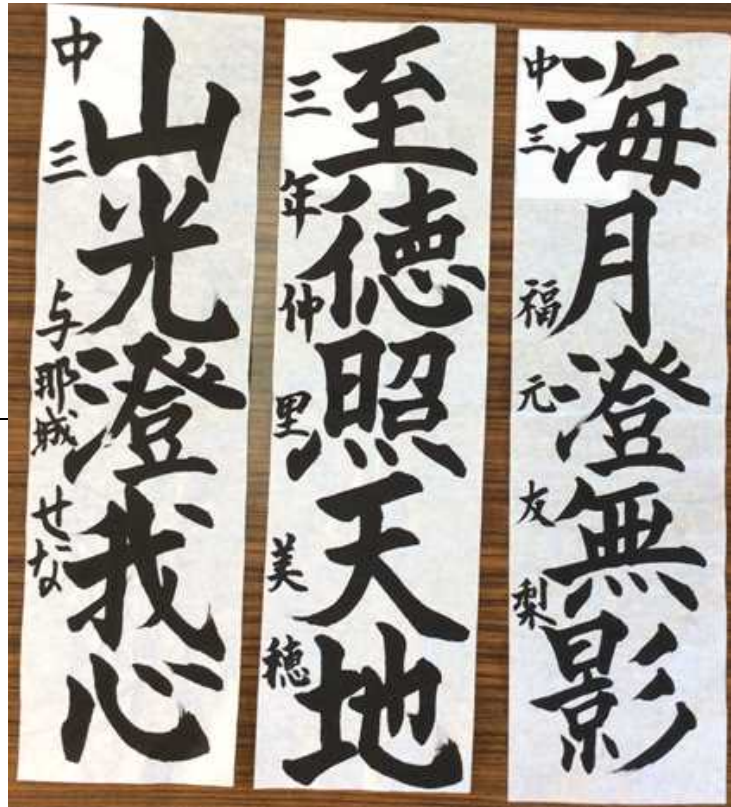 海月澄無影
中三 福元友梨
至徳照天地
三年 仲里美穂
山光澄我心
中三 与那城せな